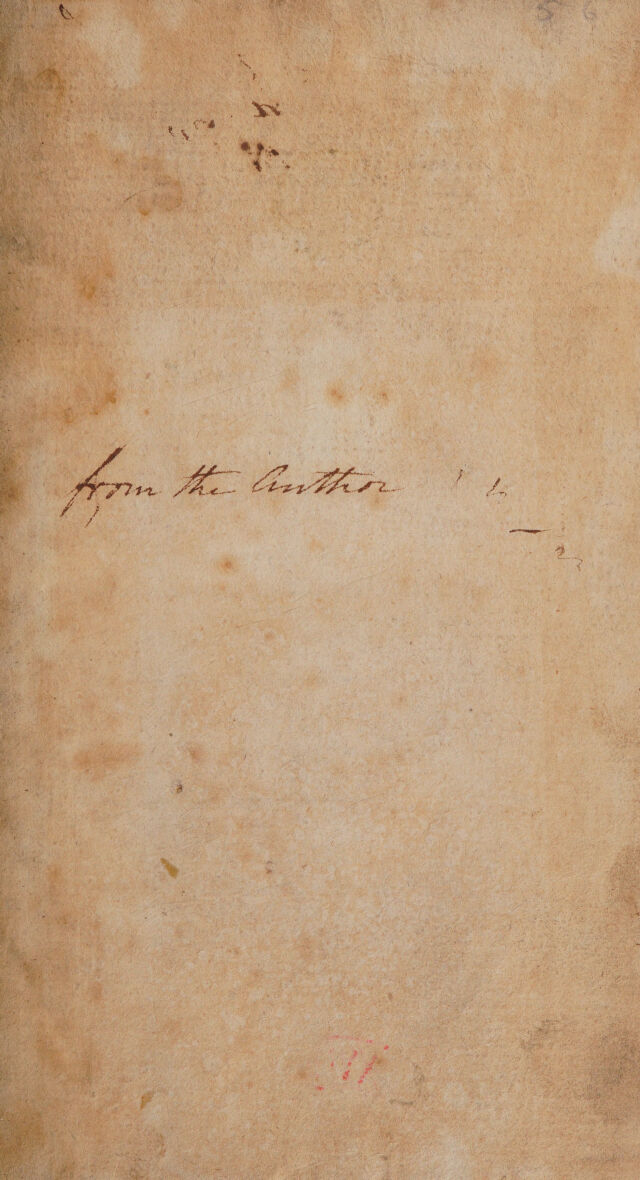 from the Author